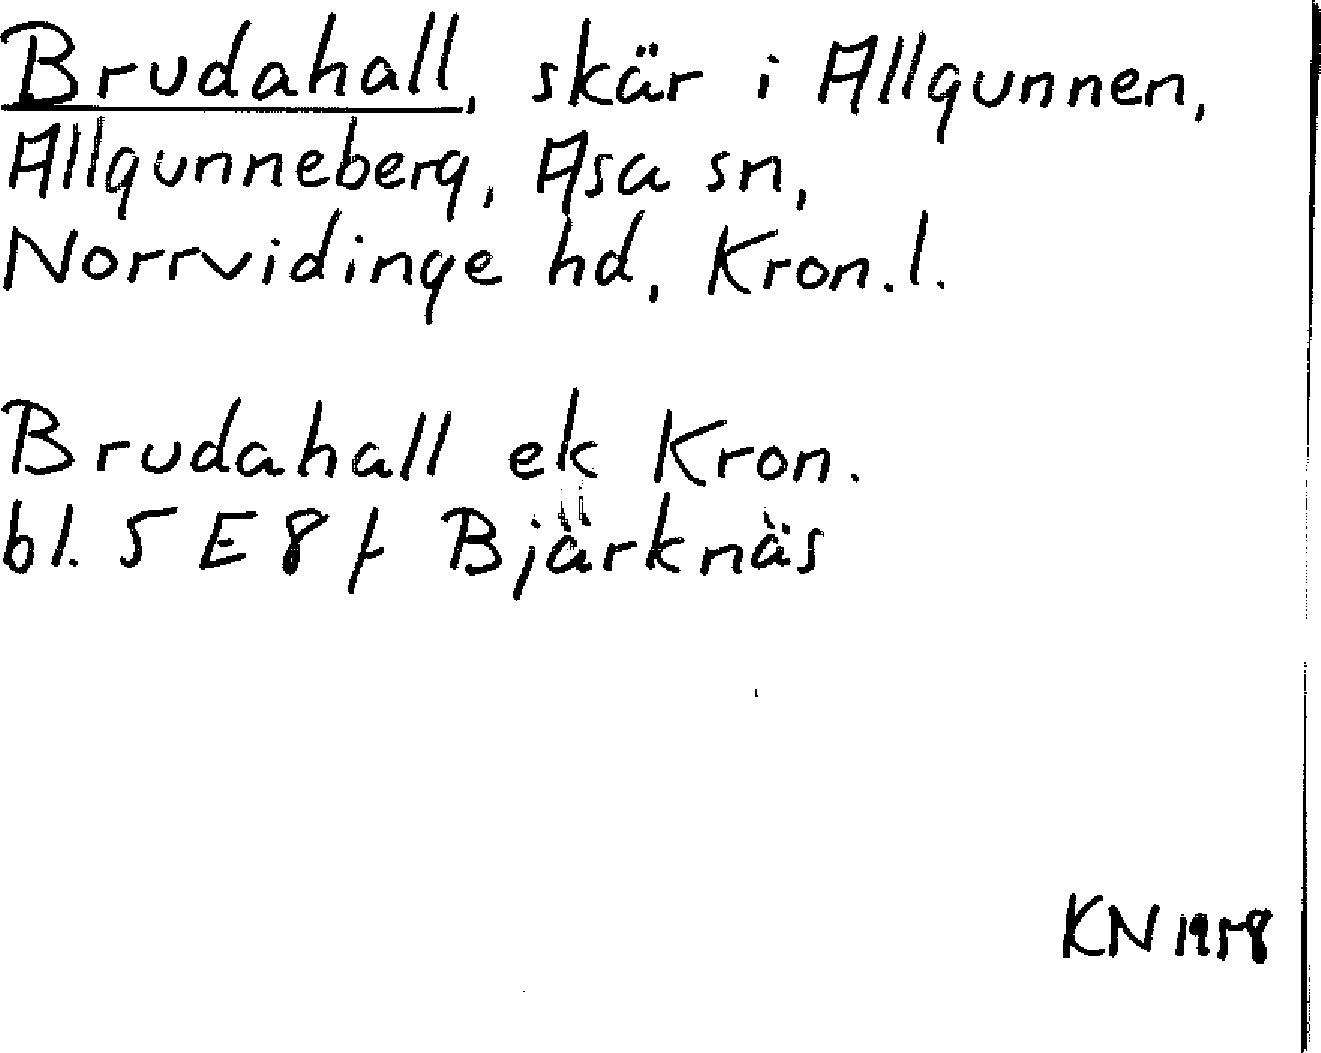 Brudahall, skär i Allgunnen,
Allgunneberg, Asa sn,
Norrvidinge hd, Kron.l.
Brudahall ek Kron.
bl. 5 E 8 f Bjärknäs
KN 1958